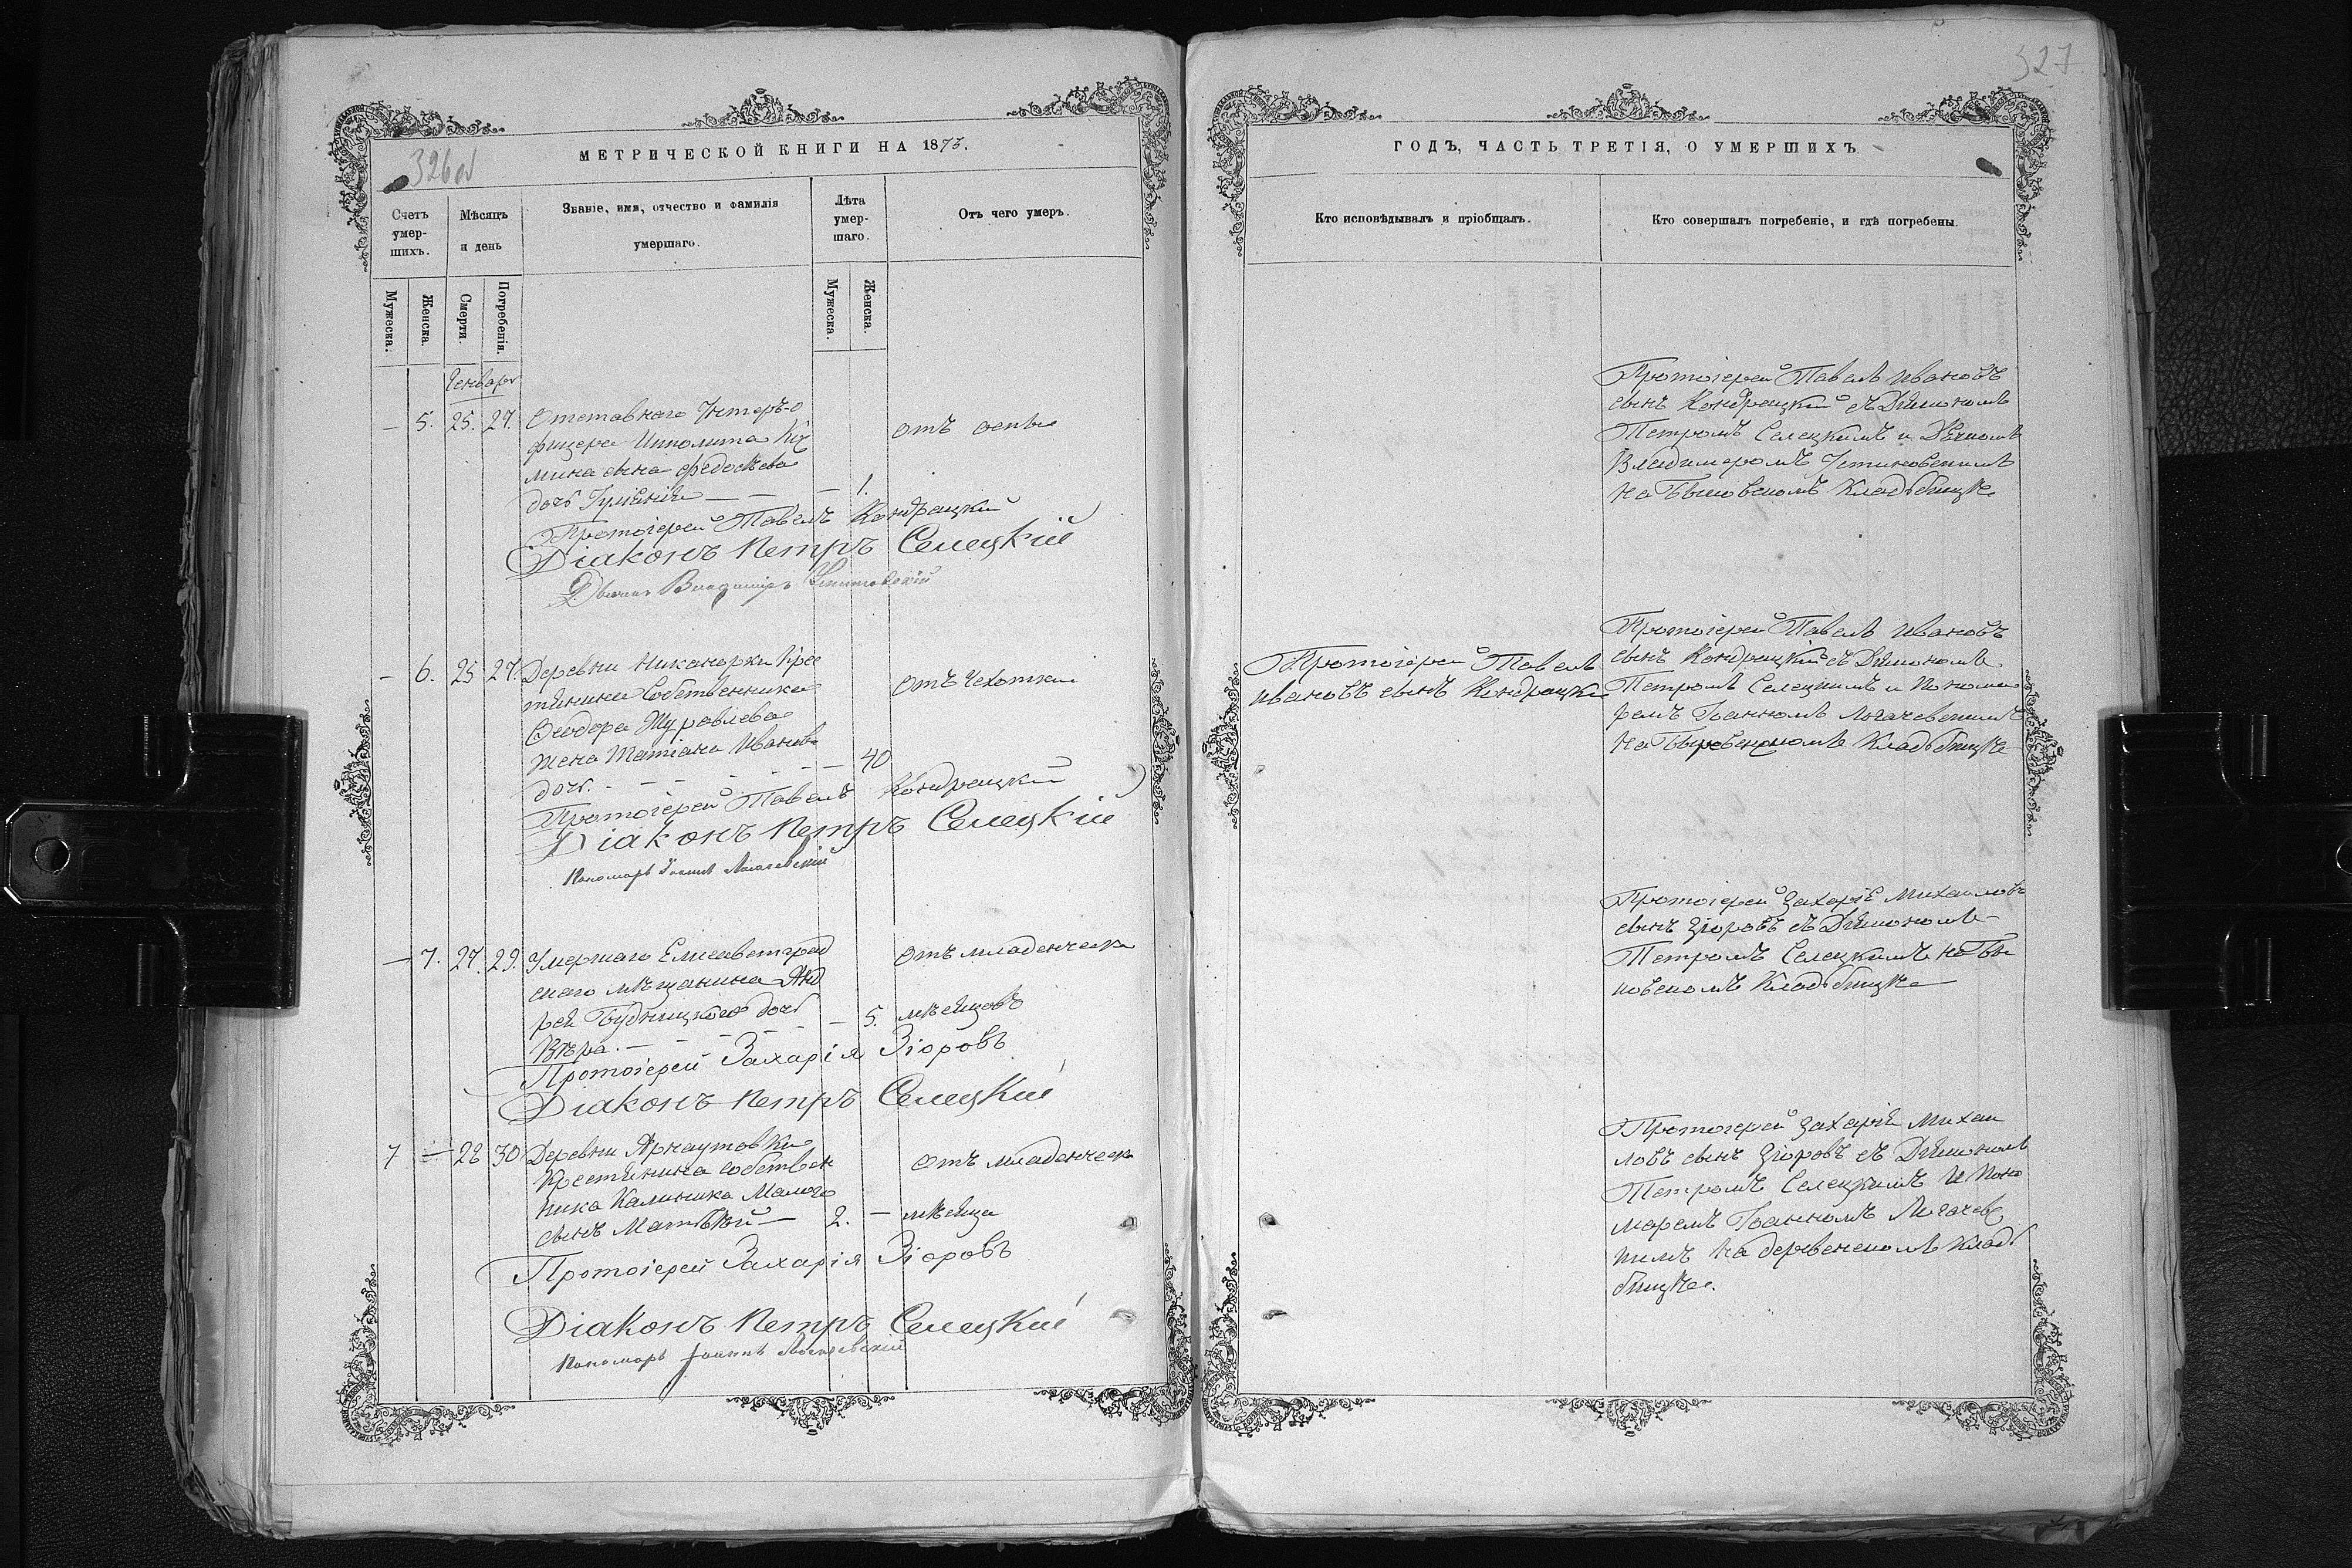 326об
МЕТРИЧЕСКОЙ КНИГИ НА 1873.
Счетъ умершихъ.
Мѣсяцъ и день
Званіе, имя, отчество и фамилія умершаго.
Лѣта умершаго.
Отъ чего умеръ.
Мужеска.
Женска.
Смерти.
Погребенія.
Мужеска.
Женска.
Генваря
— 5. 25. 27. Отставнаго Унтеръ-о
фицера Ипполита
мина сына Федосѣева
дочь — — — 1.
отъ оспы
Протоіерей Павелъ Кондрацкій
Діаконъ Петръ Селецкій
Дьячокъ Владиміръ Устиновскій
— 6. 25 27. Деревни Никанорки Крес
тянина Собственника
Ѳеодора Журавлева
жена Татіана Иванова
дочь. — — — — — 40
отъ Чехотки
Протоіерей Павелъ Кондрацкій
Діаконъ Петръ Селецкій
Пономарь Іоаннъ Логачевскій
— 7. 27. 29. Умершаго Елисаветград
скаго мѣщанина Анд
рея Будницкого дочь
Вѣра. — — — — — 5. мѣсяцовъ
отъ младенческ
Протоіерей Захарія Зіоровъ
Діаконъ Петръ Селецкій
7 — 28 30 Деревни Арнаутовки
Крестянина собствен
ника Калиника Малого
сынъ Матѳѣй — 2. — мѣсяца
отъ младенческ
Протоіерей Захарія Зіоровъ
Діаконъ Петръ Селецкій
Пономарь Іоаннъ Логачевскій
327.
ГОДЪ, ЧАСТЬ ТРЕТІЯ, О УМЕРШИХЪ
Кто исповѣдывалъ и пріобщалъ.
Кто совершалъ погребеніе, и гдѣ погребены.
Протоіерей Павелъ Ивановъ
сынъ Кондрацкій съ Діакономъ
Петромъ Селецкимъ и Дьячкомъ
Владимеромъ Устиновскимъ
на Быковскомъ Кладьбищѣ
Протоіерей Павелъ
Ивановъ сынъ Кондрацкій
Протоіерей Павелъ Ивановъ
сынъ Кондрацкій съ Діакономъ
Петромъ Селецкимъ и Понома
ремъ Іоанномъ Логачевскимъ
на Кладьбищѣ
Протоіерей Захарія Михаиловъ
сынъ Зіоровъ съ Діакономъ
Петромъ Селецкимъ на Бы
ковскомъ Кладьбищѣ
Протоіерей Захарія Михаи
ловъ сынъ Зіоровъ съ Діакономъ
Петромъ Селецкимъ и Поно
маремъ Іоанномъ Логачевс
кимъ на деревенскомъ Кладь
бищѣ.